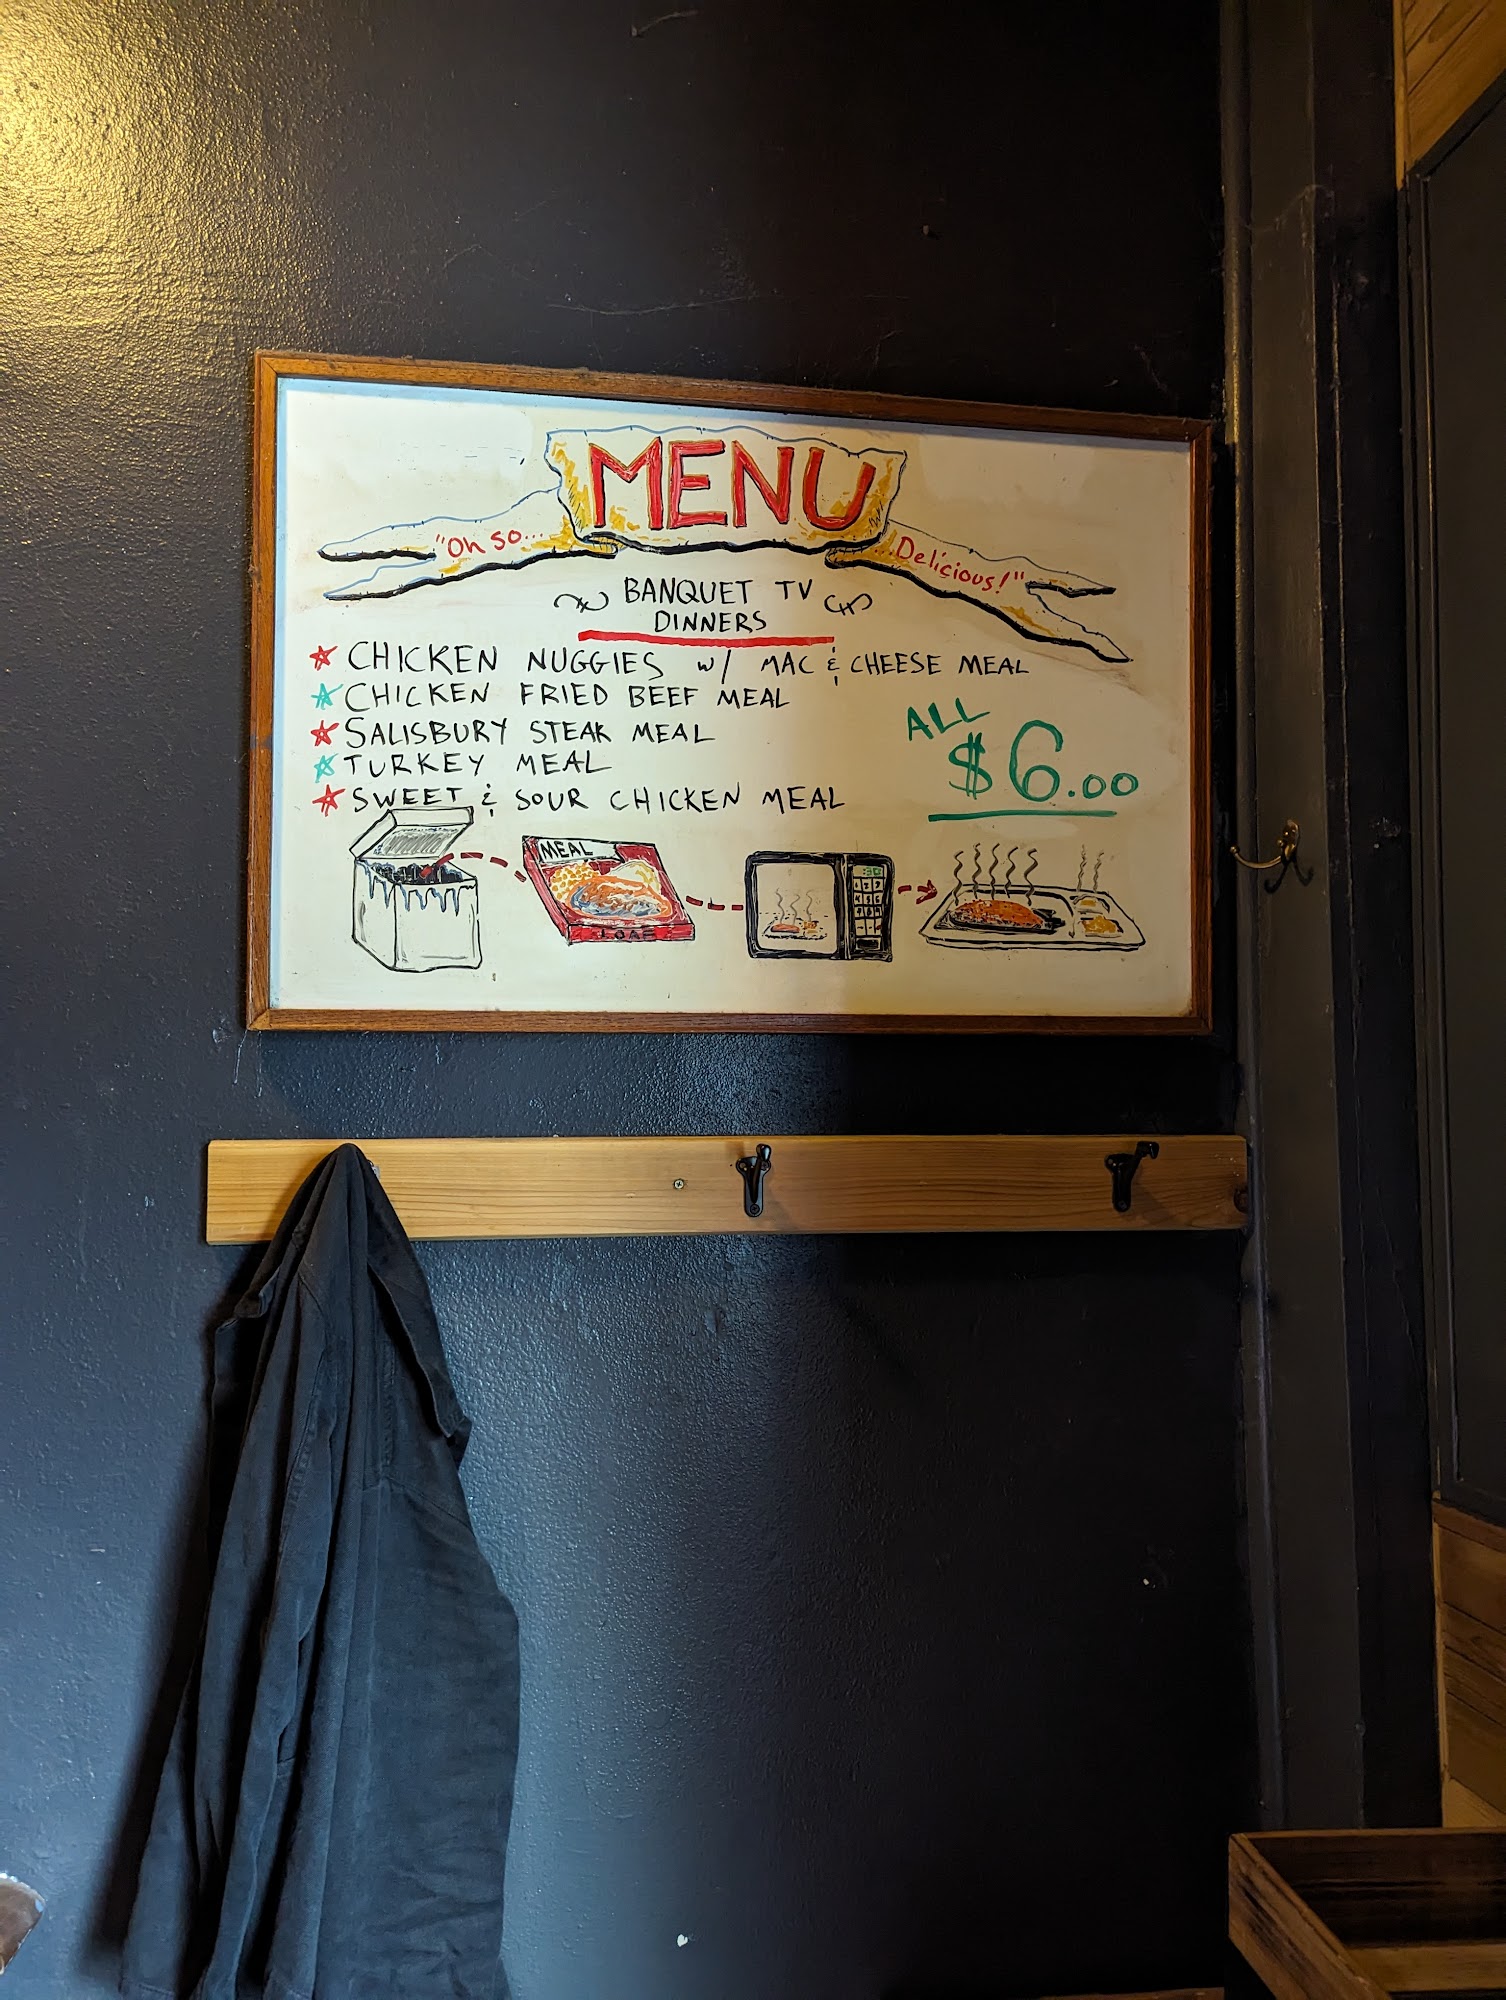 MENU
"Oh so...
...Delicious!"
BANQUET TV
DINNERS
CHICKEN NUGGIES w/ MAC & CHEESE MEAL
CHICKEN FRIED BEEF MEAL
SALISBURY STEAK MEAL
TURKEY MEAL
SWEET & SOUR CHICKEN MEAL
ALL
$6.00
MEAL